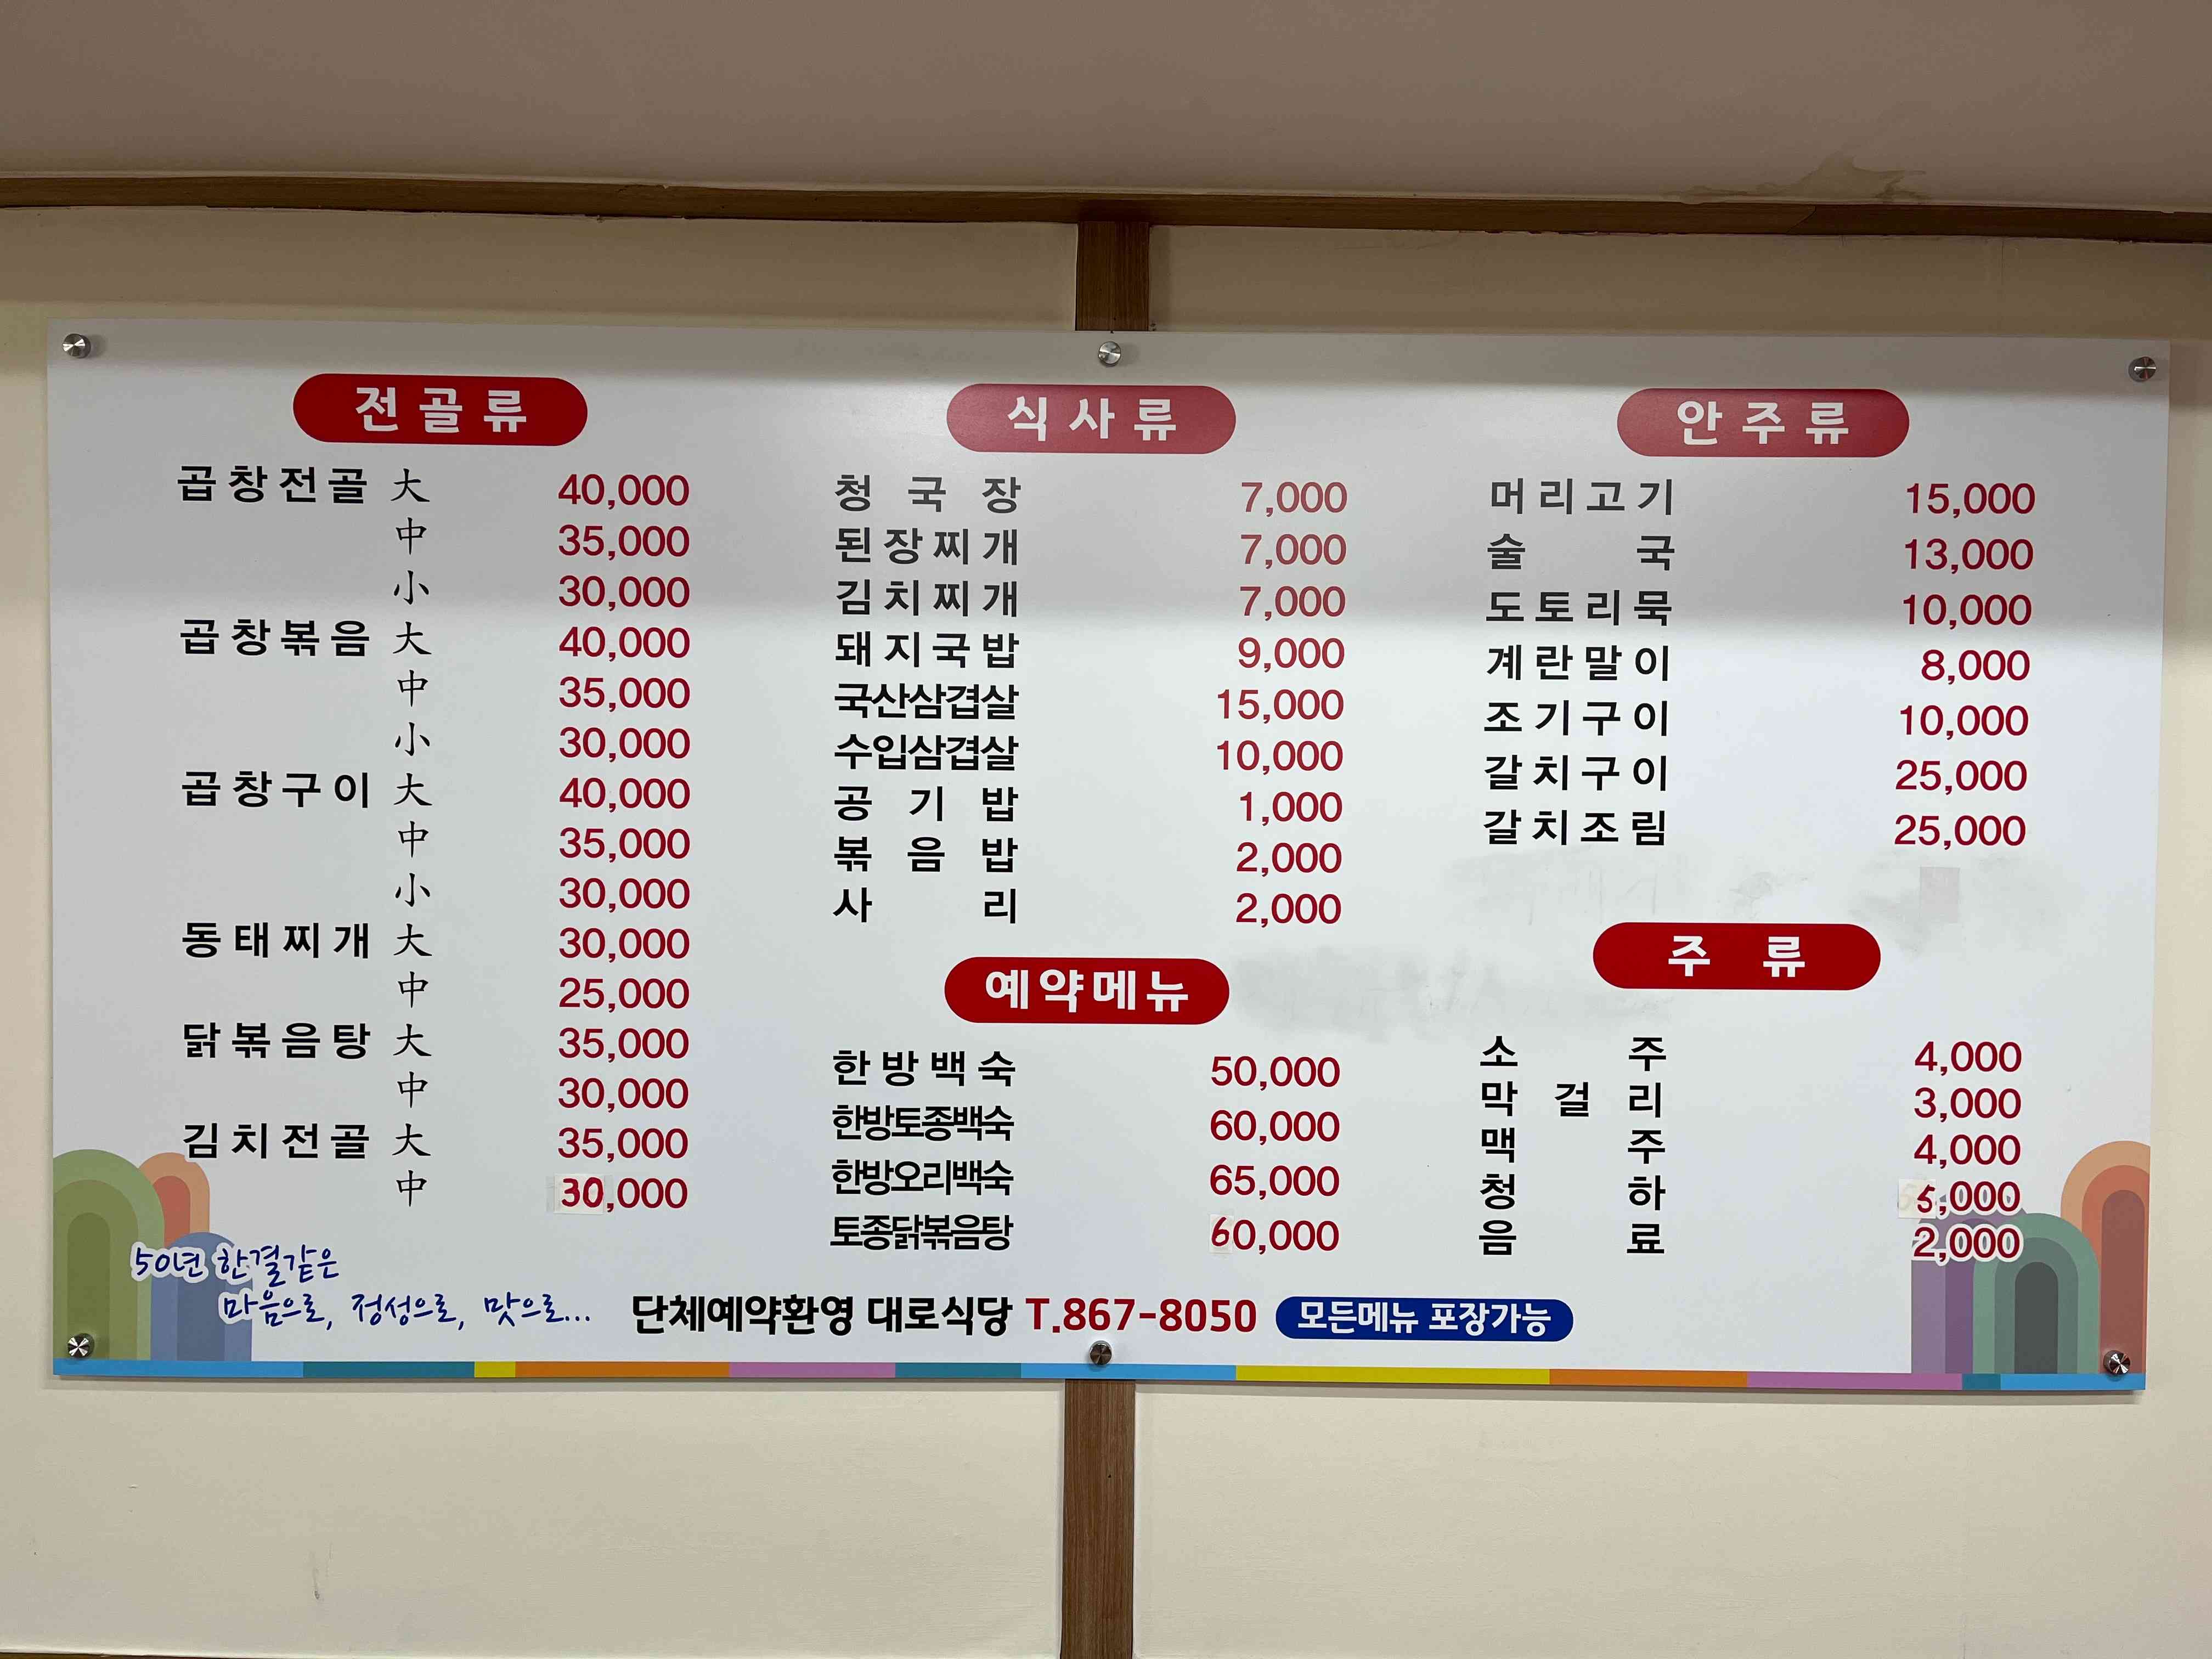 전골류
곱창전골 大 40,000
中 35,000
小 30,000
곱창볶음 大 40,000
中 35,000
小 30,000
곱창구이 大 40,000
中 35,000
小 30,000
동태찌개 大 30,000
中 25,000
닭볶음탕 大 35,000
中 30,000
김치전골 大 35,000
中 30,000
식사류
청국장 7,000
된장찌개 7,000
김치찌개 7,000
돼지국밥 9,000
국산삼겹살 15,000
수입삼겹살 10,000
공기밥 1,000
볶음밥 2,000
사리 2,000
예약메뉴
한방백숙 50,000
한방토종백숙 60,000
한방오리백숙 65,000
토종닭볶음탕 60,000
안주류
머리고기 15,000
술국 13,000
도토리묵 10,000
계란말이 8,000
조기구이 10,000
갈치구이 25,000
갈치조림 25,000
주류
소주 4,000
막걸리 3,000
맥주 4,000
청하 5,000
음료 2,000
50년 한결같은
마음으로, 정성으로, 맛으로...
단체예약환영 대로식당 T.867-8050 모든메뉴 포장가능